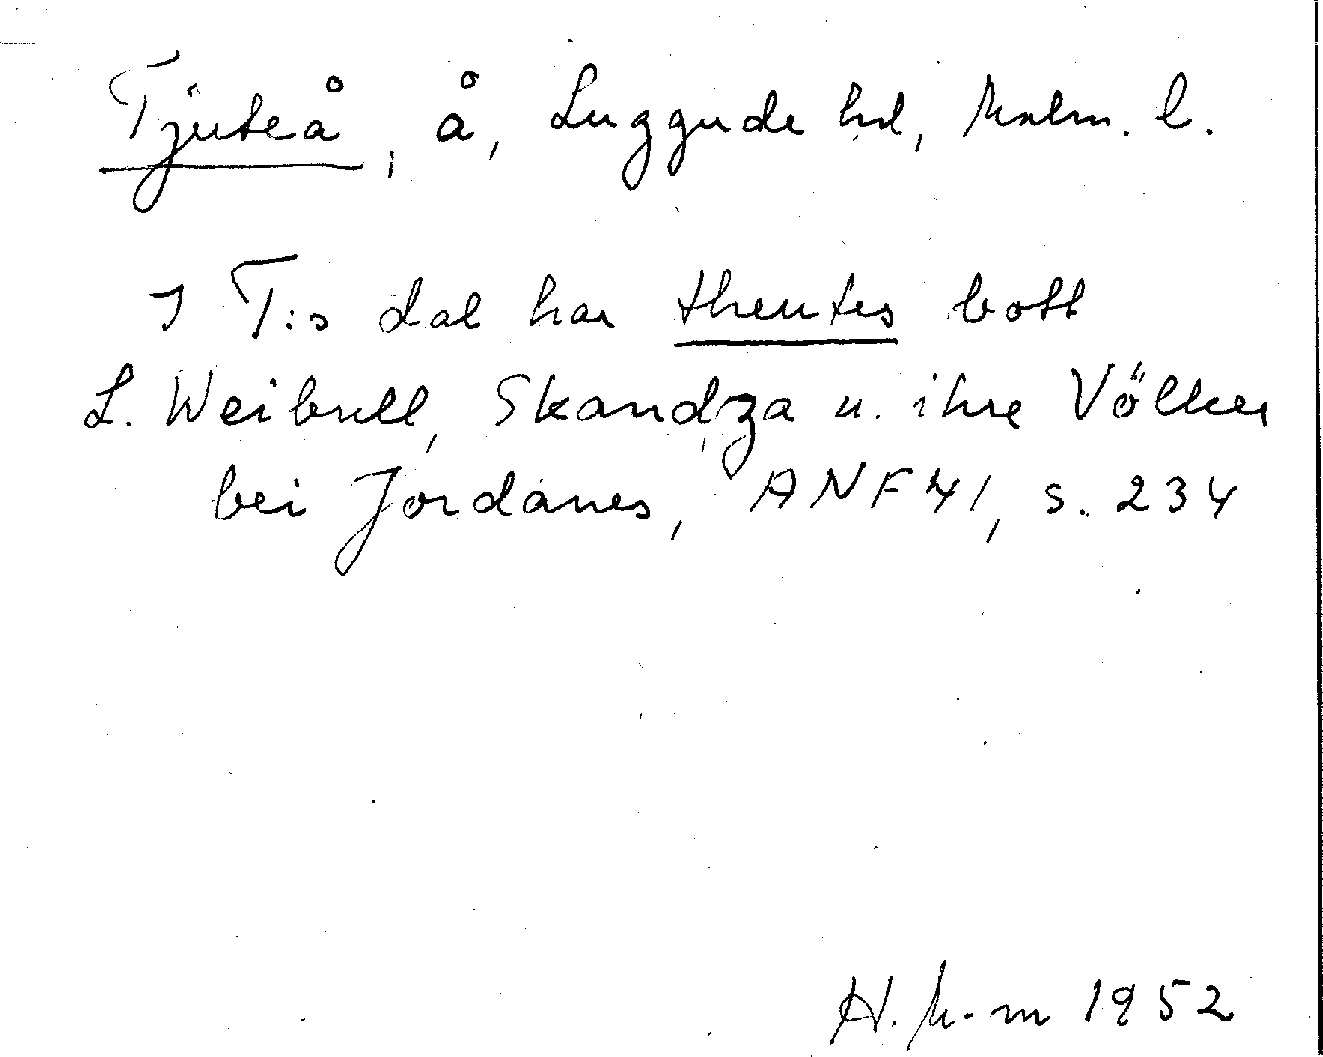 Tjuteå, å, Luggude hd, Malm. l.
I T:s dal har theutes bott
L. Weibull, Skandza u. ihre Völker
bei Jordanes, ANF 41, s. 234
H. 1952